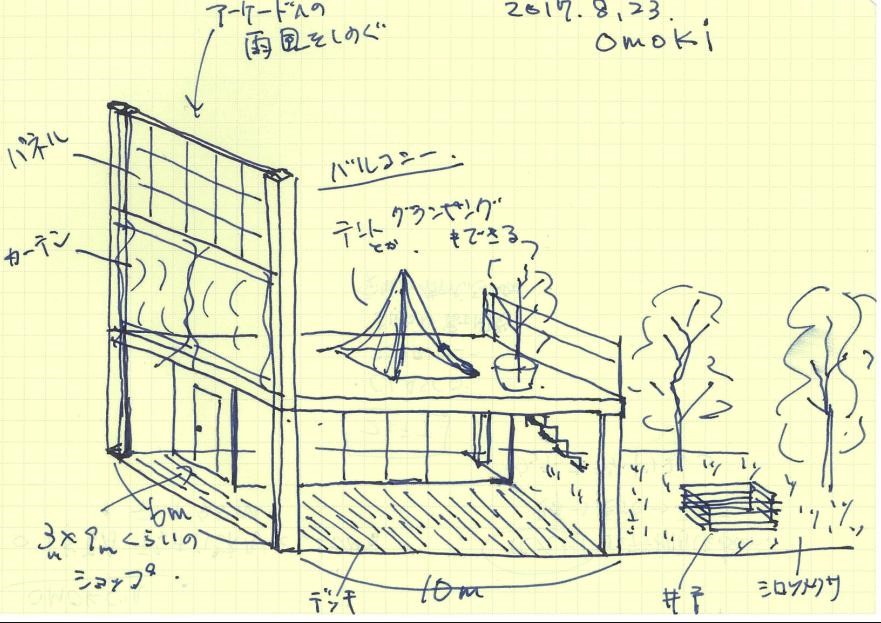 アーケードへの
雨風をしのぐ
2017. 8, 23.
omoki
パネル
バルコニー.
カーテン
テント
とか
グランピング
もできる
6m
3m × 9mくらいの
ショップ.
デッキ
10m
井戸
シロツメクサ